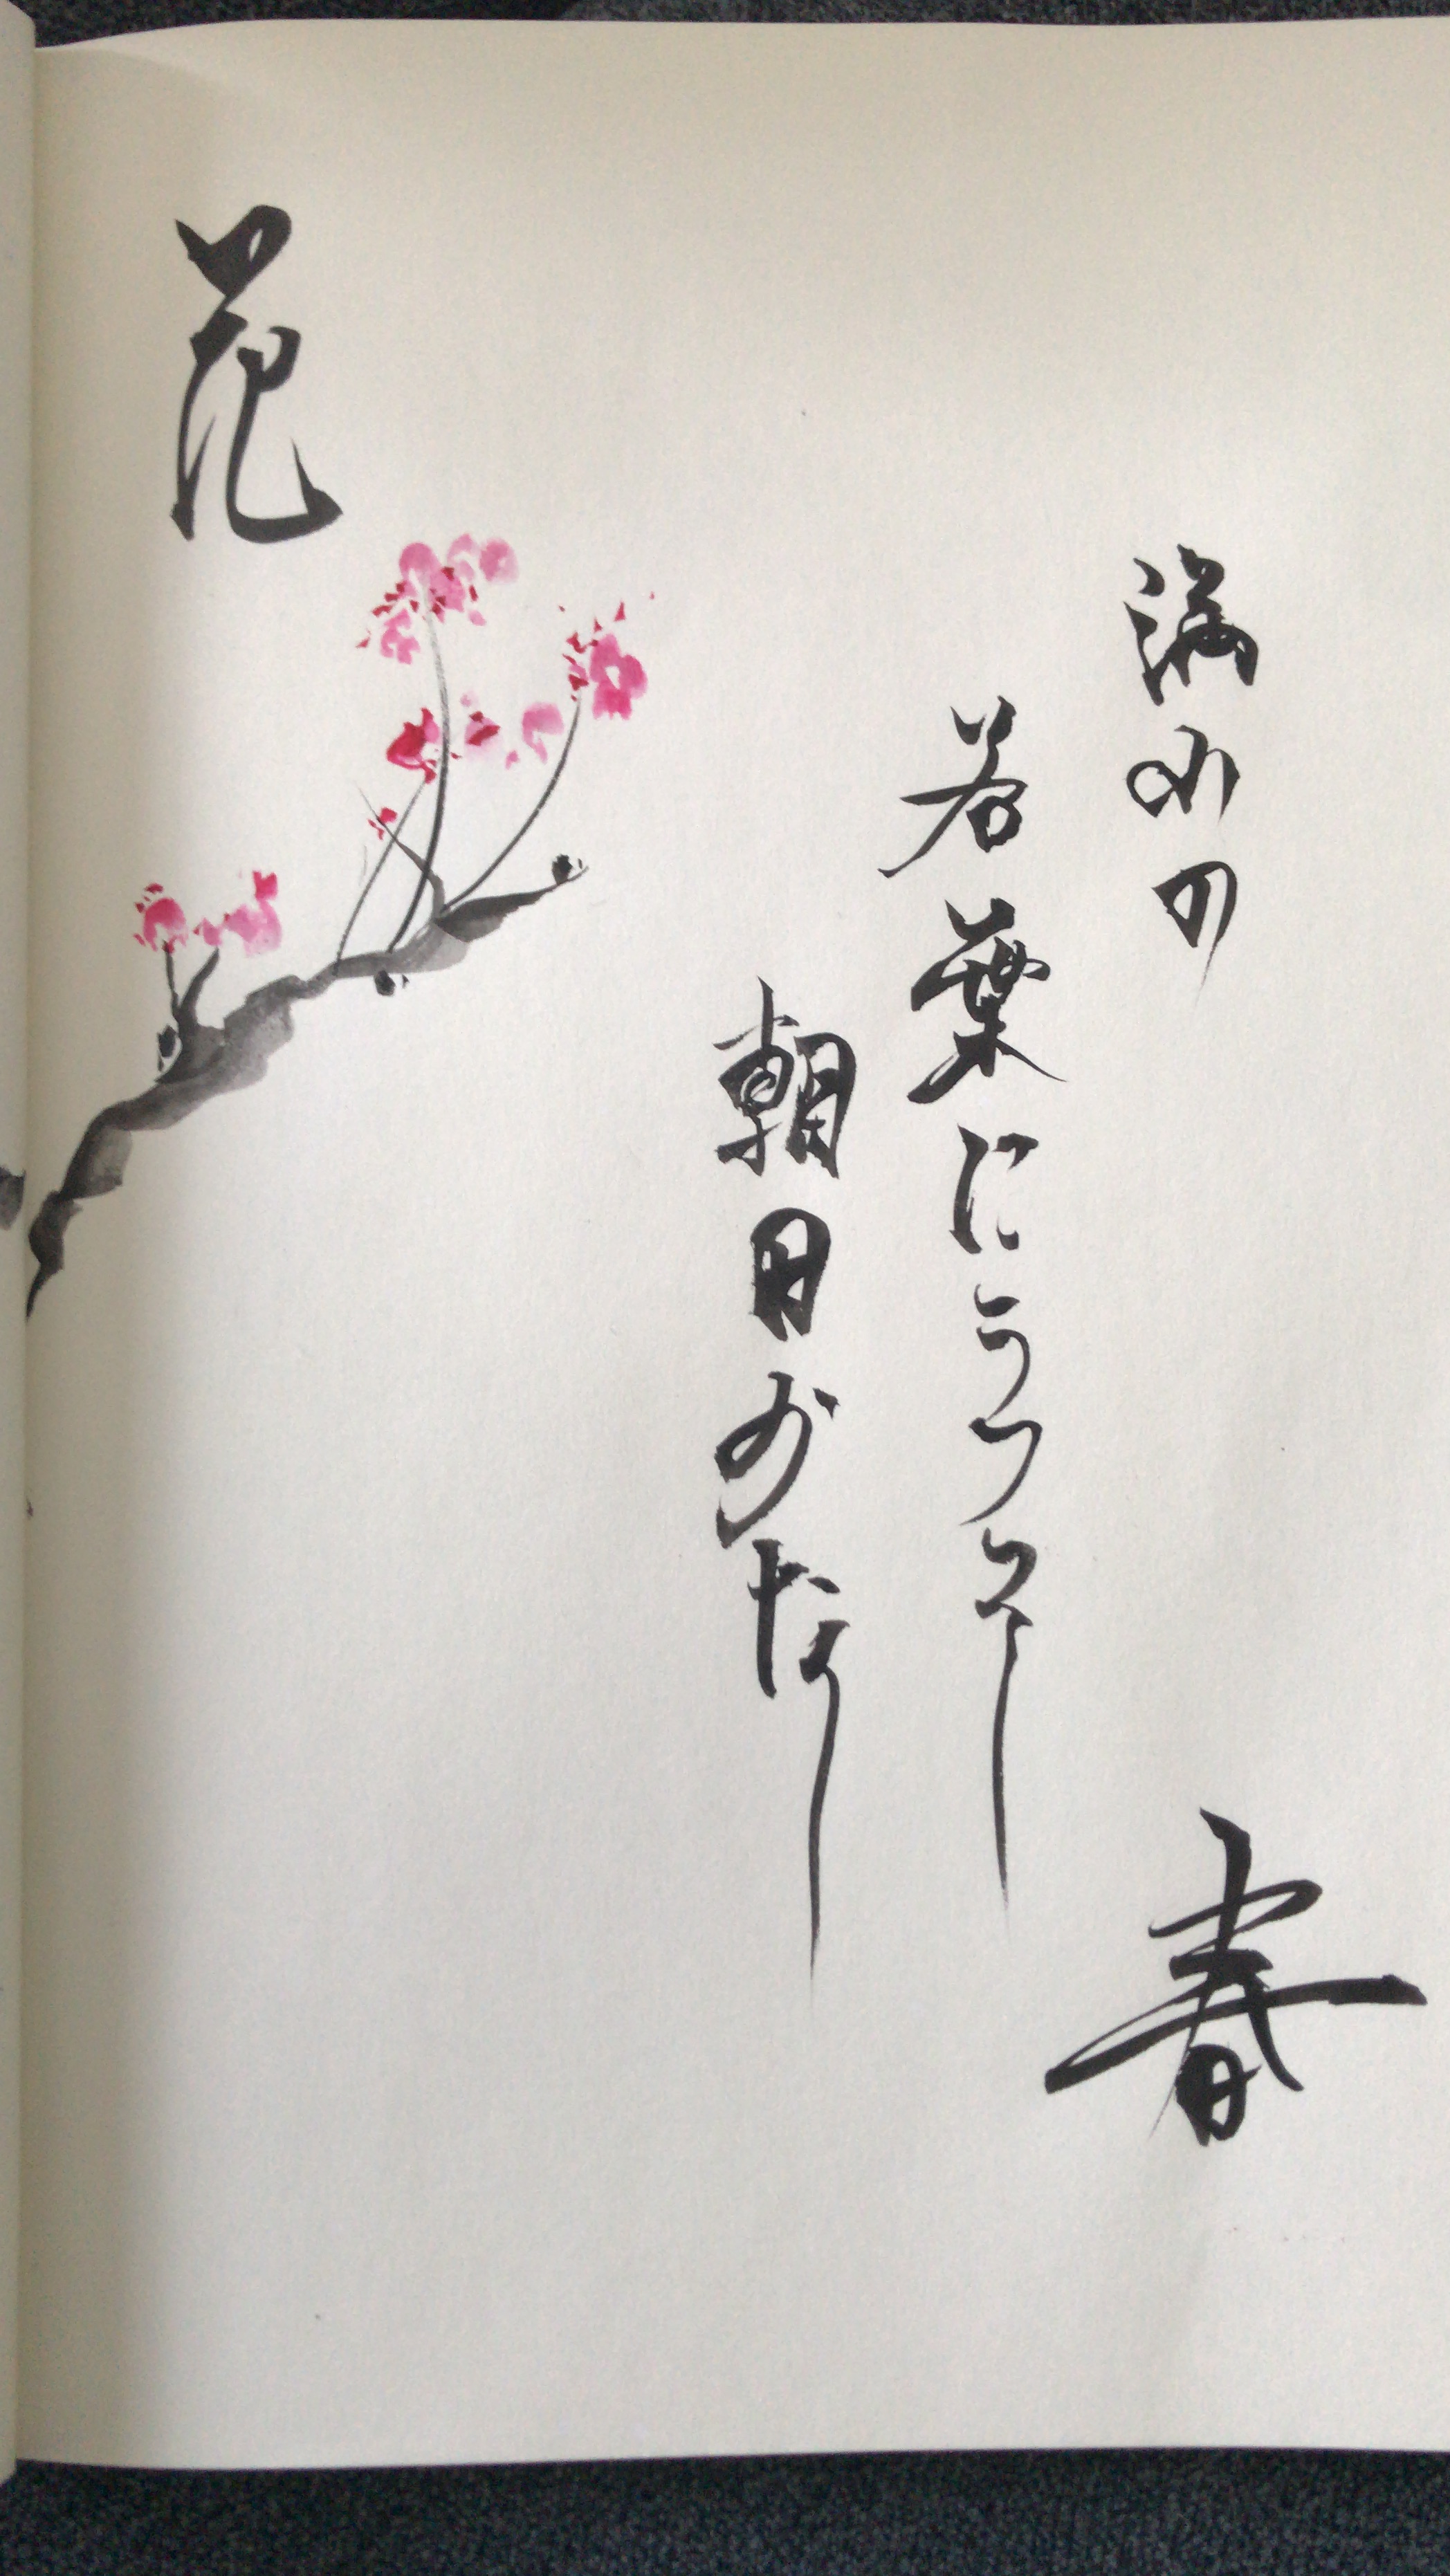 満山の
若葉にうつる
朝日かな
春
花